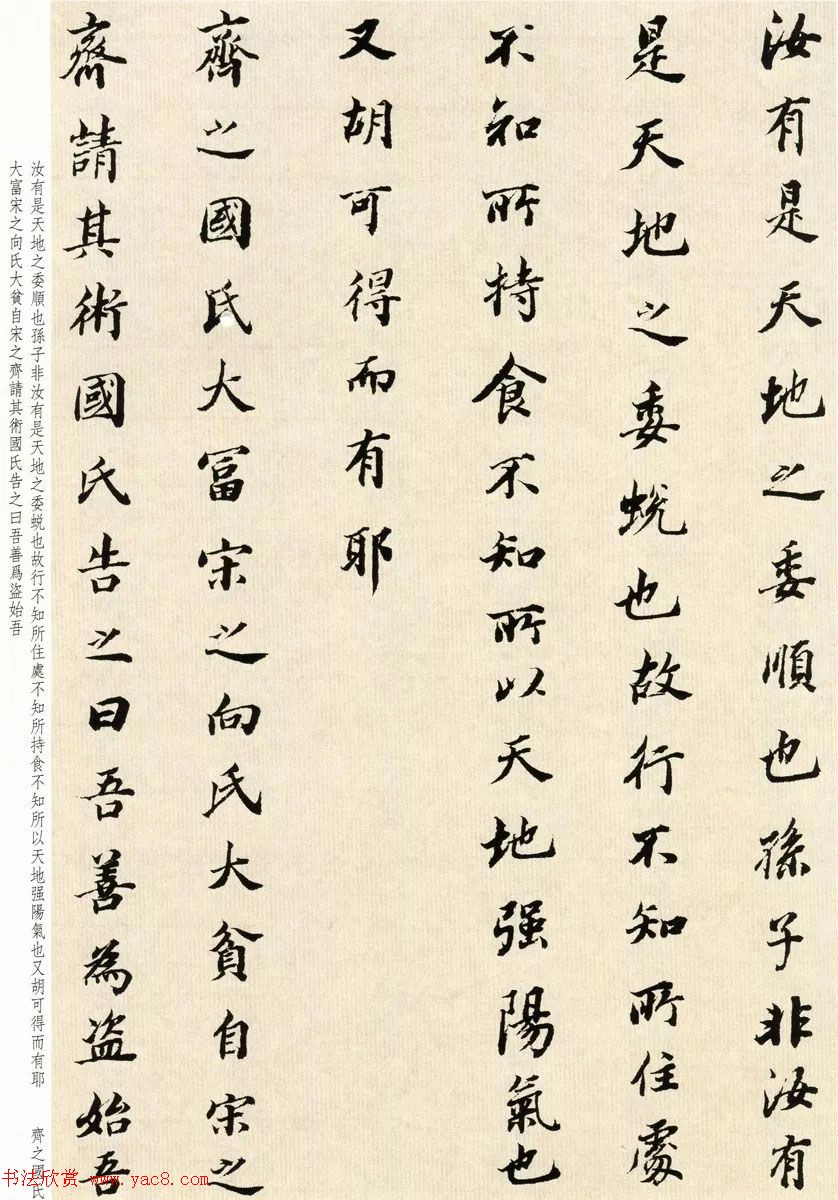 汝有是天地之委順也孫子非汝有
是天地之委蛻也故行不知所住處
不知所持食不知所以天地强陽氣也
又胡可得而有耶
齊之國氏大富宋之向氏大貧自宋之
齊請其術國氏告之曰吾善為盜始吾
汝有是天地之委順也孫子非汝有是天地之委蛻也故行不知所住處不知所持食不知所以天地强陽氣也又胡可得而有耶 齊之國氏
大富宋之向氏大貧自宋之齊請其術國氏告之曰吾善爲盜始吾
书法欣赏 www.yac8.com